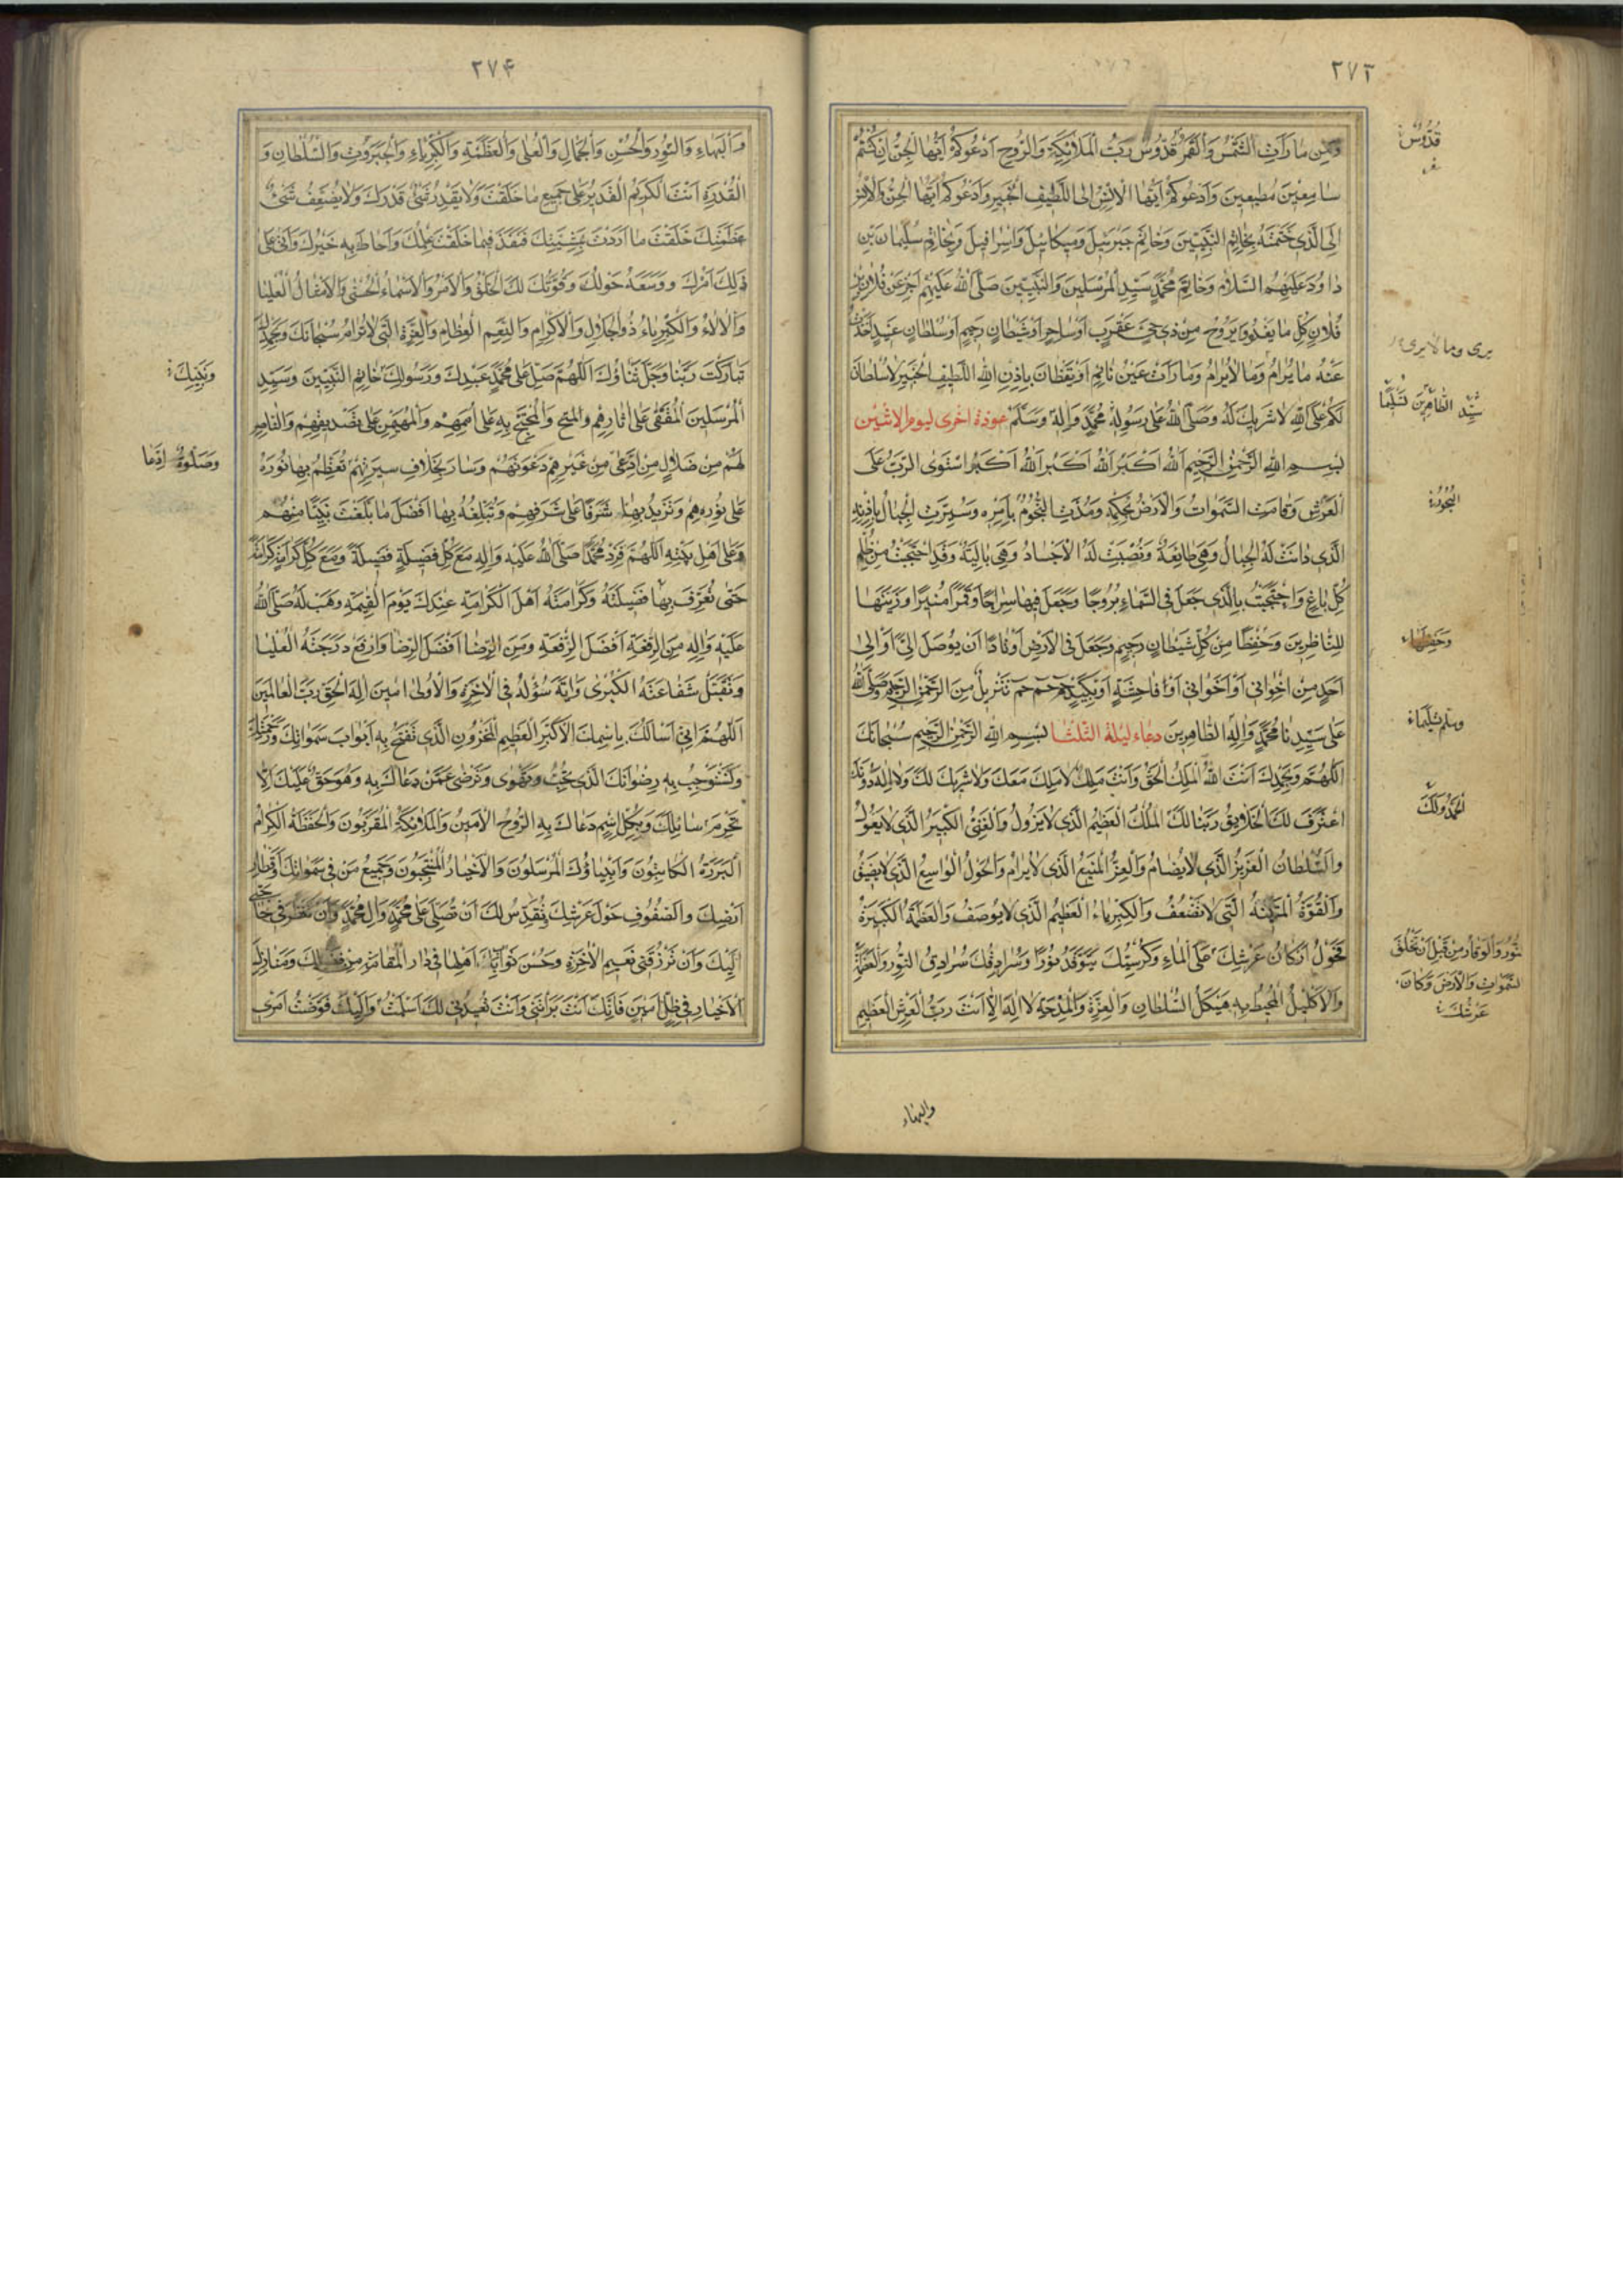 ٢٧٣
وَمِن ما رَأَتِ الشَّمْسُ وَالْقَمَرُ قُدُّوسٌ رَبُّ الْمَلائِكَةِ وَالرُّوحِ اَدْعُوكُمْ اَيُّهَا الْجِنُّ اِنْ كُنْتُمْ
سامِعينَ مُطيعينَ وَاَدْعُوكُمْ اَيُّهَا الْاِنْسُ اِلَى اللَّطيفِ الْخَبيرِ وَاَدْعُوكُمْ اَيُّهَا الْجِنُّ وَالْاِنْسُ
اِلَى الَّذي خَتَمْتُهُ بِخاتَمِ النَّبِيّينَ وَخاتَمِ جَبْرَئيلَ وَميكائيلَ وَاِسْرافيلَ وَبِخاتَمِ سُلَيْمانَ بْنِ
داوُدَ عَلَيْهِمُ السَّلامُ وَخاتَمِ مُحَمَّدٍ سَيِّدِ الْمُرْسَلينَ وَالنَّبِيّينَ صَلَّى اللهُ عَلَيْهِمْ اَخِّرْ عَنْ فُلانِ بْنِ
فُلانٍ كُلَّ ما يَغْدُو وَيَرُوحُ مِنْ ذي حَيٍّ عَقْرَبٍ اَوْ ساحِرٍ اَوْ شَيْطانٍ رَجيمٍ اَوْ سُلْطانٍ عَنيدٍ اَخَذْتُ
عَنْهُ ما يُرامُ وَما لا يُرامُ وَما رَأَتْ عَيْنُ نائِمٍ اَوْ يَقْظانَ بِاِذْنِ اللهِ اللَّطيفِ الْخَبيرِ لا سُلْطانَ
لَكُمْ عَلَى اللهِ لا شَريكَ لَهُ وَصَلَّى اللهُ عَلى رَسُولِهِ مُحَمَّدٍ وَاٰلِهِ وَسَلَّمَ عوذة اخرى ليوم الاثنين
بِسْمِ اللهِ الرَّحْمٰنِ الرَّحيمِ اَللهُ اَكْبَرُ اَللهُ اَكْبَرُ اَللهُ اَكْبَرُ اسْتَوَى الرَّبُّ عَلَى
الْعَرْشِ وَقامَتِ السَّمٰواتُ وَالْاَرْضُ بِحُكْمِهِ وَمُدَّتِ النُّجُومُ بِاَمْرِهِ وَسُيِّرَتِ الْجِبالُ بِاِذْنِهِ
الَّذي دانَتْ لَهُ الْجِبالُ وَهِيَ طائِعَةٌ وَنُصِبَتْ لَهُ الْاَجْسادُ وَهِيَ بالِيَةٌ وَقَدِ احْتَجَبْتُ مِنْ ظُلْمِ
كُلِّ باغٍ وَاحْتَجَبْتُ بِالَّذي جَعَلَ فِي السَّماءِ بُرُوجًا وَجَعَلَ فيها سِراجًا وَقَمَرًا مُنيرًا وَزَيَّنَها
لِلنّاظِرينَ وَحِفْظًا مِنْ كُلِّ شَيْطانٍ رَجيمٍ وَجَعَلَ فِي الْاَرْضِ اَوْتادًا اَنْ يُوصَلَ اِلَيَّ اَوْ اِلى
اَحَدٍ مِنْ اِخْواني اَوْ اَخَواتي اَوْ فاحِشَةٍ اَوْ بَلِيَّةٍ حٰمٓ حٰمٓ تَنْزيلٌ مِنَ الرَّحْمٰنِ الرَّحيمِ وَصَلَّى اللهُ
عَلى سَيِّدِنا مُحَمَّدٍ وَاٰلِهِ الطّاهِرينَ دعاء ليلة الثلثا بِسْمِ اللهِ الرَّحْمٰنِ الرَّحيمِ سُبْحانَكَ
اللّٰهُمَّ وَبِحَمْدِكَ اَنْتَ اللهُ الْمَلِكُ الْحَقُّ وَاَنْتَ مَلِكٌ لا مَلِكَ مَعَكَ وَلا شَريكَ لَكَ وَلا اِلٰهَ دُونَكَ
اعْتَرَفَ لَكَ الْخَلائِقُ رَبَّنا لَكَ الْمُلْكُ الْعَظيمُ الَّذي لا يَزُولُ وَالْغِنَى الْكَبيرُ الَّذي لا يَعُولُ
وَالسُّلْطانُ الْعَزيزُ الَّذي لا يُضامُ وَالْعِزُّ الْمَنيعُ الَّذي لا يُرامُ وَالْحَوْلُ الْواسِعُ الَّذي لا يَضيقُ
وَالْقُوَّةُ الْمَتينَةُ الَّتي لا تَضْعُفُ وَالْكِبْرِياءُ الْعَظيمُ الَّذي لا يُوصَفُ وَالْعَظَمَةُ الْكَبيرَةُ
فَحَوْلَ اَرْكانِ عَرْشِكَ عَلَى الْماءِ وَكُرْسِيُّكَ يَتَوَقَّدُ نُورًا وَسُرادِقُكَ سُرادِقُ النُّورِ وَالْعَظَمَةِ
وَالْاِكْليلُ الْمُحيطُ بِهِ هَيْكَلُ السُّلْطانِ وَالْعِزَّةِ وَالْمِدْحَةِ لا اِلٰهَ اِلّا اَنْتَ رَبُّ الْعَرْشِ الْعَظيمِ
والبهاء
قُدُّوسٌ
يرى وما لا يرى
سَيِّدِ الطّاهِرينَ تَسْليمًا
النُّجُومُ
وَحَفِظَها
وسلم تسليما
الْحَمْدُ وَلَكَ
النُّورِ وَالْوَقارِ مِنْ قَبْلِ اَنْ تَخْلُقَ
السَّمٰواتِ وَالْاَرْضَ وَكانَ
عَرْشُكَ
٢٧۴
وَالْبَهاءِ وَالنُّورِ وَالْحُسْنِ وَالْجَمالِ وَالْعُلى وَالْعَظَمَةِ وَالْكِبْرِياءِ وَالْجَبَرُوتِ وَالسُّلْطانِ وَ
الْقُدْرَةِ اَنْتَ الْكَريمُ الْقَديرُ عَلى جَميعِ ما خَلَقْتَ وَلا يَقْدِرُ شَيْءٌ قَدْرَكَ وَلا يُضَعِّفُ شَيْءٌ
عَظَمَتَكَ خَلَقْتَ ما اَرَدْتَ بِمَشِيَّتِكَ فَنَفَذَ فيما خَلَقْتَ عِلْمُكَ وَاَحاطَ بِهِ خُبْرُكَ وَاَتى عَلى
ذٰلِكَ اَمْرُكَ وَوَسِعَهُ حَوْلُكَ وَقُوَّتُكَ لَكَ الْخَلْقُ وَالْاَمْرُ وَالْاَسْماءُ الْحُسْنى وَالْاَمْثالُ الْعُلْيا
وَالْاٰلاءُ وَالْكِبْرِياءُ ذُو الْجَلالِ وَالْاِكْرامِ وَالنِّعَمِ الْعِظامِ وَالْعِزَّةِ الَّتي لا تُرامُ سُبْحانَكَ وَبِحَمْدِكَ
تَبارَكْتَ رَبَّنا وَجَلَّ ثَناؤُكَ اَللّٰهُمَّ صَلِّ عَلى مُحَمَّدٍ عَبْدِكَ وَرَسُولِكَ خاتَمِ النَّبِيّينَ وَسَيِّدِ
الْمُرْسَلينَ الْمُقَفّى عَلى اٰثارِهِمْ وَالْمُحْتَجِّ بِهِ عَلى اُمَمِهِمْ وَالْمُهَيْمِنِ عَلى تَصْديقِهِمْ وَالنّاصِرِ
لَهُمْ مِنْ ضَلالِ مَنِ ادَّعى مِنْ غَيْرِهِمْ دَعْوَتَهُمْ وَسارَ بِخِلافِ سيرَتِهِمْ تُعَظِّمُ بِها نُورَهُ
عَلى نُورِهِمْ وَتَزيدُ بِها شَرَفًا عَلى شَرَفِهِمْ وَتُبَلِّغُهُ بِها اَفْضَلَ ما بَلَّغْتَ نَبِيًّا مِنْهُمْ
وَعَلى اَهْلِ بَيْتِهِ اَللّٰهُمَّ فَزِدْ مُحَمَّدًا صَلَّى اللهُ عَلَيْهِ وَاٰلِهِ مَعَ كُلِّ فَضيلَةٍ فَضيلَةً وَمَعَ كُلِّ كَرامَةٍ كَرامَةً
حَتّى تُعَرِّفَ بِها فَضيلَتَهُ وَكَرامَتَهُ اَهْلَ الْكَرامَةِ عِنْدَكَ يَوْمَ الْقِيٰمَةِ وَهَبْ لَهُ صَلَّى اللهُ
عَلَيْهِ وَاٰلِهِ مِنَ الرِّفْعَةِ اَفْضَلَ الرِّفْعَةِ وَمِنَ الرِّضا اَفْضَلَ الرِّضا وَارْفَعْ دَرَجَتَهُ الْعُلْيا
وَتَقَبَّلْ شَفاعَتَهُ الْكُبْرى وَاٰتِهِ سُؤْلَهُ فِي الْاٰخِرَةِ وَالْاُولى اٰمينَ اِلٰهَ الْحَقِّ رَبَّ الْعالَمينَ
اَللّٰهُمَّ اِنّي اَسْاَلُكَ بِاسْمِكَ الْاَكْبَرِ الْعَظيمِ الْمَخْزُونِ الَّذي تَفْتَحُ بِهِ اَبْوابَ سَمٰواتِكَ وَرَحْمَتِكَ
وَتَسْتَوْجِبُ بِهِ رِضْوانَكَ الَّذي تُحِبُّ وَتَهْوى وَتَرْضى عَمَّنْ دَعاكَ بِهِ وَهُوَ حَقٌّ عَلَيْكَ اَلّا
تَحْرِمَ سائِلَكَ وَبِكُلِّ اسْمٍ دَعاكَ بِهِ الرُّوحُ الْاَمينُ وَالْمَلائِكَةُ الْمُقَرَّبُونَ وَالْحَفَظَةُ الْكِرامُ
الْبَرَرَةُ الْكاتِبُونَ وَاَنْبِياؤُكَ الْمُرْسَلُونَ وَالْاَخْيارُ الْمُنْتَجَبُونَ وَجَميعُ مَنْ في سَمٰواتِكَ وَاَقْطارِ
اَرْضِكَ وَالصُّفُوفُ حَوْلَ عَرْشِكَ تُقَدِّسُ لَكَ اَنْ تُصَلِّيَ عَلى مُحَمَّدٍ وَاٰلِ مُحَمَّدٍ وَاَنْ تَنْظُرَ في حاجَتي
اِلَيْكَ وَاَنْ تَرْزُقَني نَعيمَ الْاٰخِرَةِ وَحُسْنَ ثَوابِ اَهْلِها في دارِ الْمُقامَةِ مِنْ فَضْلِكَ وَمَنازِلِ
الْاَخْيارِ في ظِلٍّ اَمينٍ فَاِنَّكَ اَنْتَ بَرَأْتَني وَاَنْتَ تُعيدُني لَكَ اَسْلَمْتُ وَاِلَيْكَ فَوَّضْتُ اَمْري
وَنَبِيِّكَ
وَصَلٰوةً